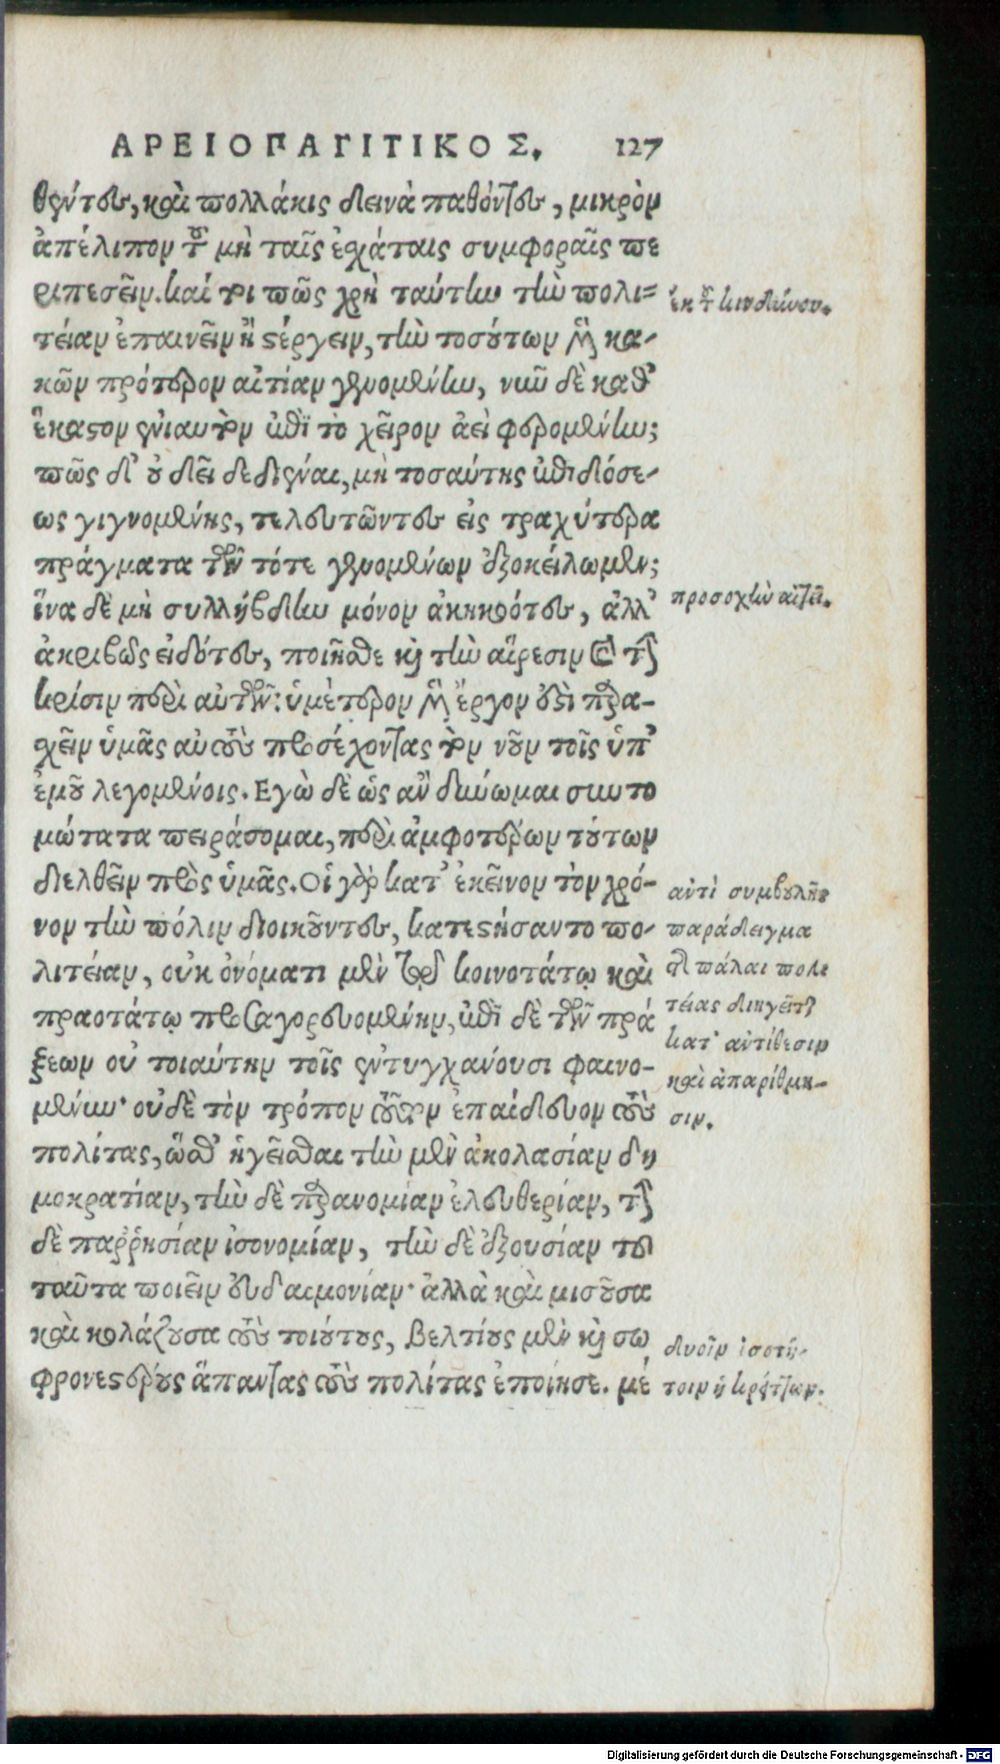 ΑΡΕΙΟΠΑΓΙΤΙΚΟΣ. 127
θέντες, καὶ πολλάκις δεινὰ παθόντες, μικρὸν
ἀπέλιπον τοῦ μὴ ταῖς ἐσχάταις συμφοραῖς πε
ριπεσεῖν. καί τοι πῶς χρὴ ταύτην τὴν πολι=
τείαν ἐπαινεῖν ἢ στέργειν, τὴν τοσούτων μὲν κα-
κῶν πρότερον αἰτίαν γενομένην, νῦν δὲ καθ'
ἕκαστον ἐνιαυτὸν ἐπὶ τὸ χεῖρον ἀεὶ φερομένην;
πῶς δ' οὐ δεῖ δεδιέναι, μὴ τοσαύτης ἐπιδόσε-
ως γιγνομένης, τελευτῶντες εἰς τραχύτερα
πράγματα τῶν τότε γενομένων ἐξοκείλωμεν;
ἵνα δὲ μὴ συλλήβδην μόνον ἀκηκοότες, ἀλλ'
ἀκριβῶς εἰδότες, ποιῆσθε καὶ τὴν αἵρεσιν καὶ τὴν
κρίσιν περὶ αὐτῶν: ὑμέτερον μὲν ἔργον ἐστὶ παρα-
σχεῖν ὑμᾶς αὐτοὺς προσέχοντας τὸν νοῦν τοῖς ὑπ'
ἐμοῦ λεγομένοις. Εγὼ δὲ ὡς ἂν δύνωμαι συντο
μώτατα πειράσομαι, περὶ ἀμφοτέρων τούτων
διελθεῖν πρὸς ὑμᾶς. Οἱ γὰρ κατ' ἐκεῖνον τὸν χρό-
νον τὴν πόλιν διοικοῦντες, κατεστήσαντο πο-
λιτείαν, οὐκ ὀνόματι μὲν τῷ κοινοτάτῳ καὶ
πραοτάτῳ προσαγορευομένην, ἐπὶ δὲ τῶν πρά
ξεων οὐ τοιαύτην τοῖς ἐντυγχανουσι φαινο-
μένην· οὐδὲ τὸν τρόπον τοῦτον ἐπαίδευον τοὺς
πολίτας, ὥσθ' ἡγεῖσθαι τὴν μὲν ἀκολασίαν δη
μοκρατίαν, τὴν δὲ παρανομίαν ἐλευθερίαν, τὴν
δὲ παῤῥησίαν ἰσονομίαν, τὴν δὲ ἐξουσίαν τοῦ
ταῦτα ποιεῖν εὐδαιμονίαν· ἀλλὰ καὶ μισοῦσα
καὶ κολάζουσα τοὺς τοιούτους, βελτίους μὲν καὶ σω
φρονεστέρους ἅπαντας τοὺς πολίτας ἐποίησε. μέ
ἐκ τοῦ κινδύνου.
προσοχὴν αἰτεῖ.
ἀντὶ συμβουλῆς
παράδειγμα
τῆς πάλαι πολι
τείας διηγεῖται
κατ' ἀντίθεσιν
καὶ ἀπαρίθμη-
σιν.
δυοῖν ἰσοτή-
τοιν ἡ κρείττων.
Digitalisierung gefördert durch die Deutsche Forschungsgemeinschaft - DFG